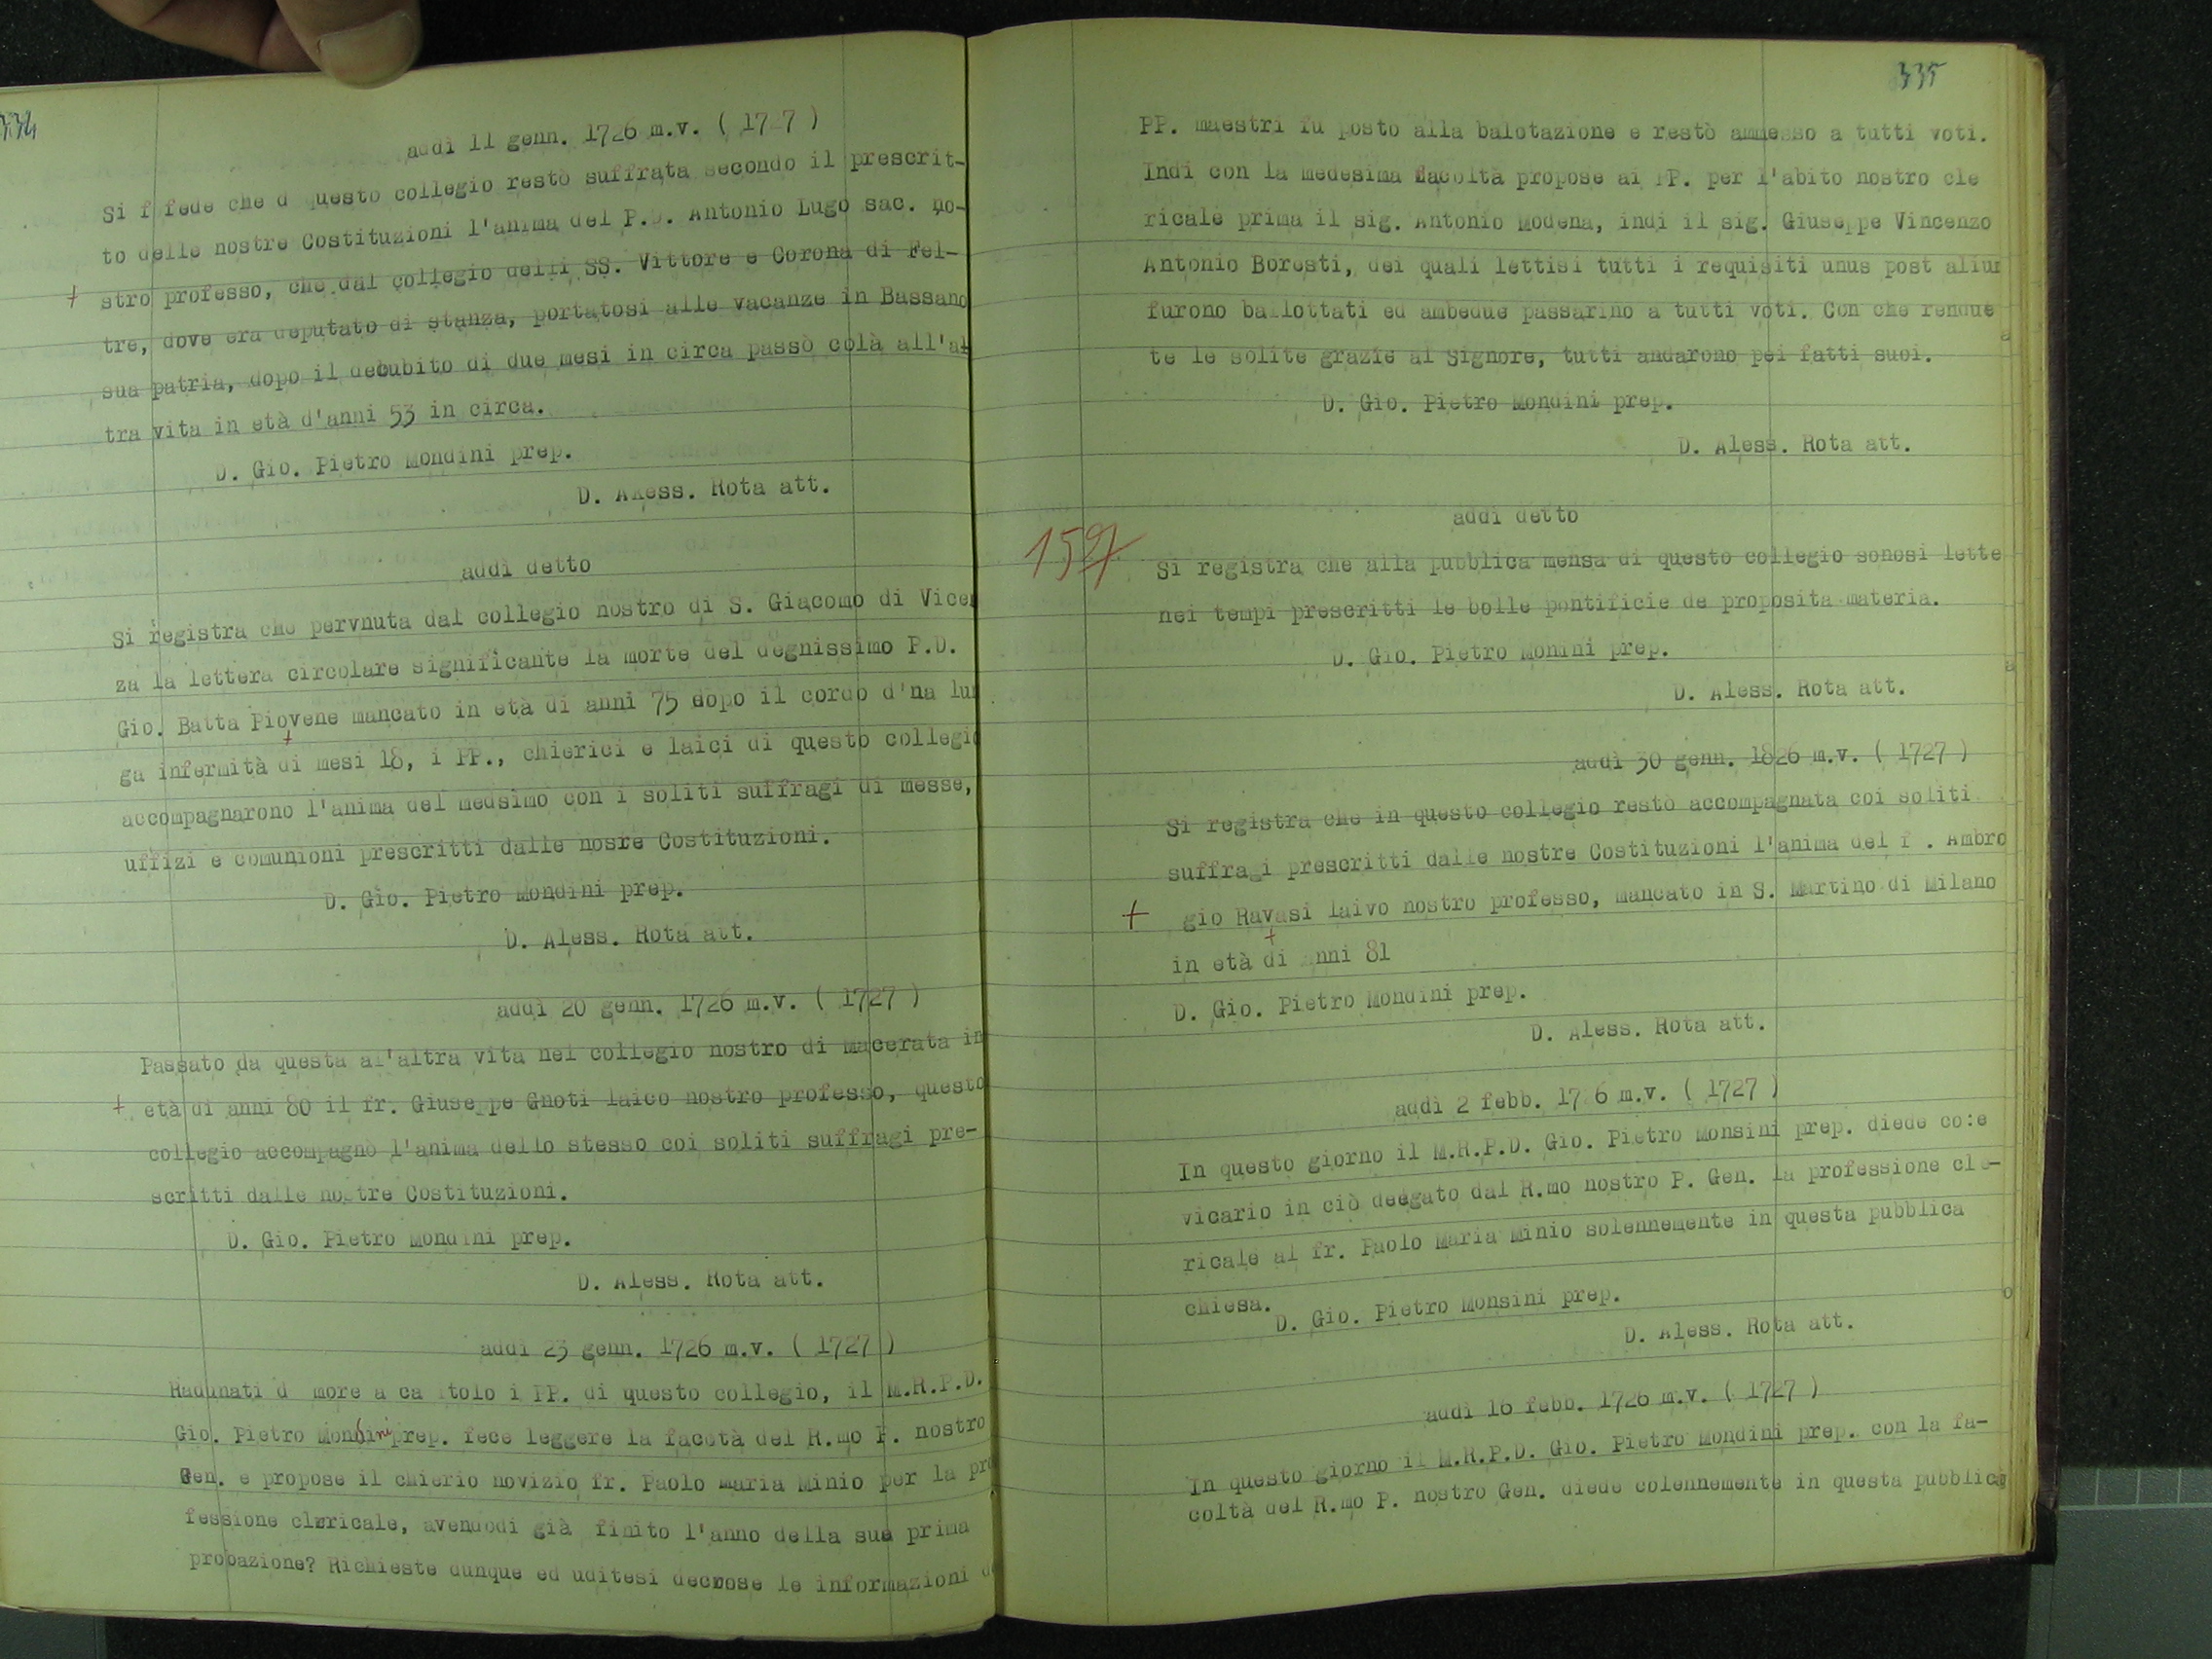 334
addì 11 genn. 1726 m.v. ( 17 7 )
Si f fede che d questo collegio restò suffrata secondo il prescrit-
to delle nostre Costituzioni l'anima del P.D. Antonio Lugo sac. no-
+ stro professo, che dal collegio delli SS. Vittore e Corona di Fel-
tre, dove era deputato di stanza, portatosi alle vacanze in Bassano
sua patria, dopo il decubito di due mesi in circa passò colà all'al
tra vita in età d'anni 53 in circa.
D. Gio. Pietro Mondini prep.
D. Aless. Rota att.
addì detto
Si registra che pervnuta dal collegio nostro di S. Giacomo di Vicen
za la lettera circolare significante la morte del degnissimo P.D.
Gio. Batta Piovene mancato in età di anni 75 dopo il cordo d'na lun
+
ga infermità di mesi 18, i PP., chierici e laici di questo collegio
accompagnarono l'anima del medsimo con i soliti suffragi di messe,
uffizi e comunioni prescritti dalle nosre Costituzioni.
D. Gio. Pietro Mondini prep.
D. Aless. Rota att.
addì 20 genn. 1726 m.v. ( 1727 )
Passato da questa al'altra vita nel collegio nostro di Macerata in
+ età di anni 80 il fr. Giuseppe Gnoti laico nostro professo, questo
collegio accompagnò l'anima dello stesso coi soliti suffragi pre-
scritti dalle nostre Costituzioni.
D. Gio. Pietro Mondini prep.
D. Aless. Rota att.
addì 23 genn. 1726 m.v. ( 1727 )
Radunati d more a ca itolo i PP. di questo collegio, il M.R.P.D.
Gio. Pietro Mondini prep. fece leggere la facotà del R.mo P. nostro
Gen. e propose il chierio novizio fr. Paolo Maria Minio per la pro
fessione clericale, avendodi già finito l'anno della sua prima
probazione? Richieste dunque ed uditesi decrose le informazioni de
335
PP. maestri fu posto alla balotazione e restò ammesso a tutti voti.
Indi con la medesima facoltà propose ai PP. per l'abito nostro cle
ricale prima il sig. Antonio Modena, indi il sig. Giuseppe Vincenzo
Antonio Boresti, dei quali lettisi tutti i requisiti unus post alium
furono ballottati ed ambedue passarino a tutti voti. Con che rendue
te le solite grazie al Signore, tutti andarono pei fatti suoi.
D. Gio. Pietro Mondini prep.
D. Aless. Rota att.
addì detto
Si registra che alla pubblica mensa di questo collegio sonosi lette
nei tempi prescritti le bolle pontificie de proposita materia.
D. Gio. Pietro Monini prep.
D. Aless. Rota att.
addì 30 genn. 1826 m.v. ( 1727 )
Si registra che in questo collegio restò accompagnata coi soliti
suffragi prescritti dalle nostre Costituzioni l'anima del f . Ambro
+ gio Ravasi laivo nostro professo, mancato in S. Martino di Milano
+
in età di anni 81
D. Gio. Pietro Mondini prep.
D. Aless. Rota att.
addì 2 febb. 1726 m.v. ( 1727 )
In questo giorno il M.R.P.D. Gio. Pietro Monsini prep. diede co:e
vicario in ciò deegato dal R.mo nostro P. Gen. la professione cle-
ricale al fr. Paolo Maria Minio solennemente in questa pubblica
chiesa.
D. Gio. Pietro Monsini prep.
D. Aless. Rota att.
addì 16 febb. 1726 m.v. ( 1727 )
In questo giorno il M.R.P.D. Gio. Pietro Mondini prep. con la fa-
coltà del R.mo P. nostro Gen. diede colennemente in questa pubblica